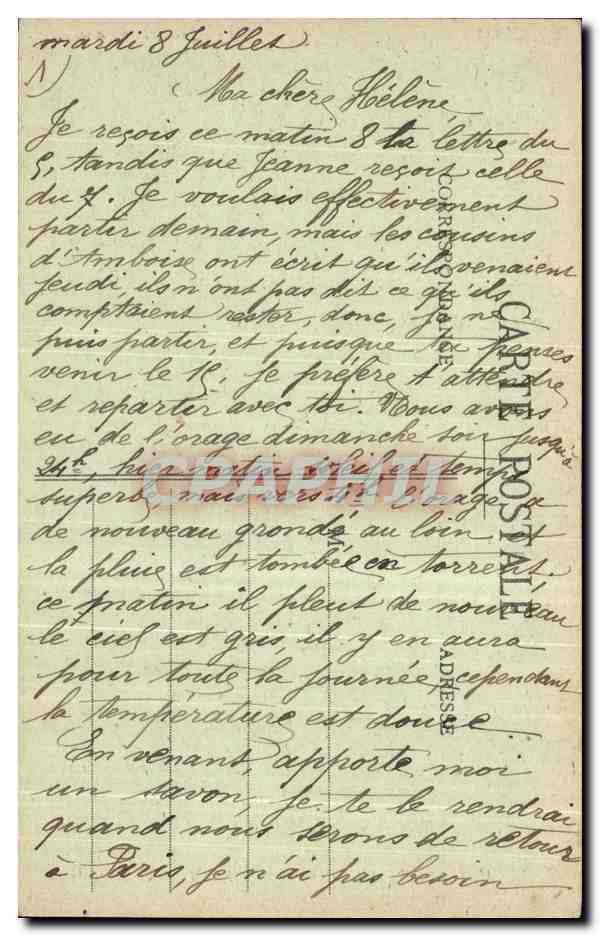 mardi 8 Juillet
1)
Ma chère Hélène,
Je reçois ce matin 8 la lettre du
5, tandis que Jeanne reçoit celle
du 7. Je voulais effectivement
partir demain, mais les cousins
d'Amboise ont écrit qu'ils venaient
jeudi, ils n'ont pas dit ce qu'ils
comptaient rester, donc, je ne
puis partir, et puisque tu penses
venir le 15, je préfère t'attendre
et repartir avec toi. Nous avons
eu de l'orage dimanche soir jusqu'à
24h, hier matin soleil et temps
superbe, mais vers 4h l'orage a
de nouveau grondé au loin et
la pluie est tombée en torrent.
ce matin il pleut de nouveau
le ciel est gris, il y en aura
pour toute la journée, cependant
la température est douce...
En venant, apporte moi
un savon, je te le rendrai
quand nous serons de retour
à Paris, je n'ai pas besoin
CARTE POSTALE
CORRESPONDANCE
ADRESSE
M
CPAPHIL